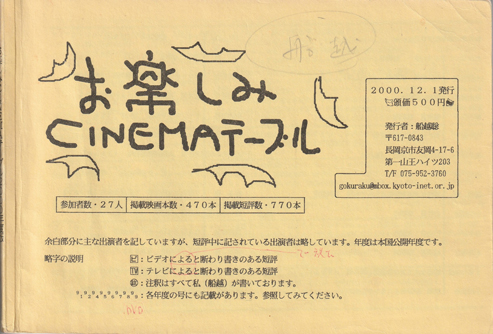 船越
お楽しみ
CINEMAテーブル
2000.12.1発行
額価500円
発行者:船越聡
〒617-0843
長岡京市友岡4-17-6
第一山王ハイツ203
T/F 075-952-3760
gokuraku@mbox.kyoto-inet.or.jp
参加者数・27人 掲載映画本数・470本 掲載短評数・770本
余白部分に主な出演者を記していますが、短評中に記されている出演者は略しています。年度は本国公開年度です。
略字の説明 :ビデオによると断わり書きのある短評
:テレビによると断わり書きのある短評
:注釈はすべて私(船越)が書いております。
:各年度の号にも記載があります。参照してみてください。
DVD